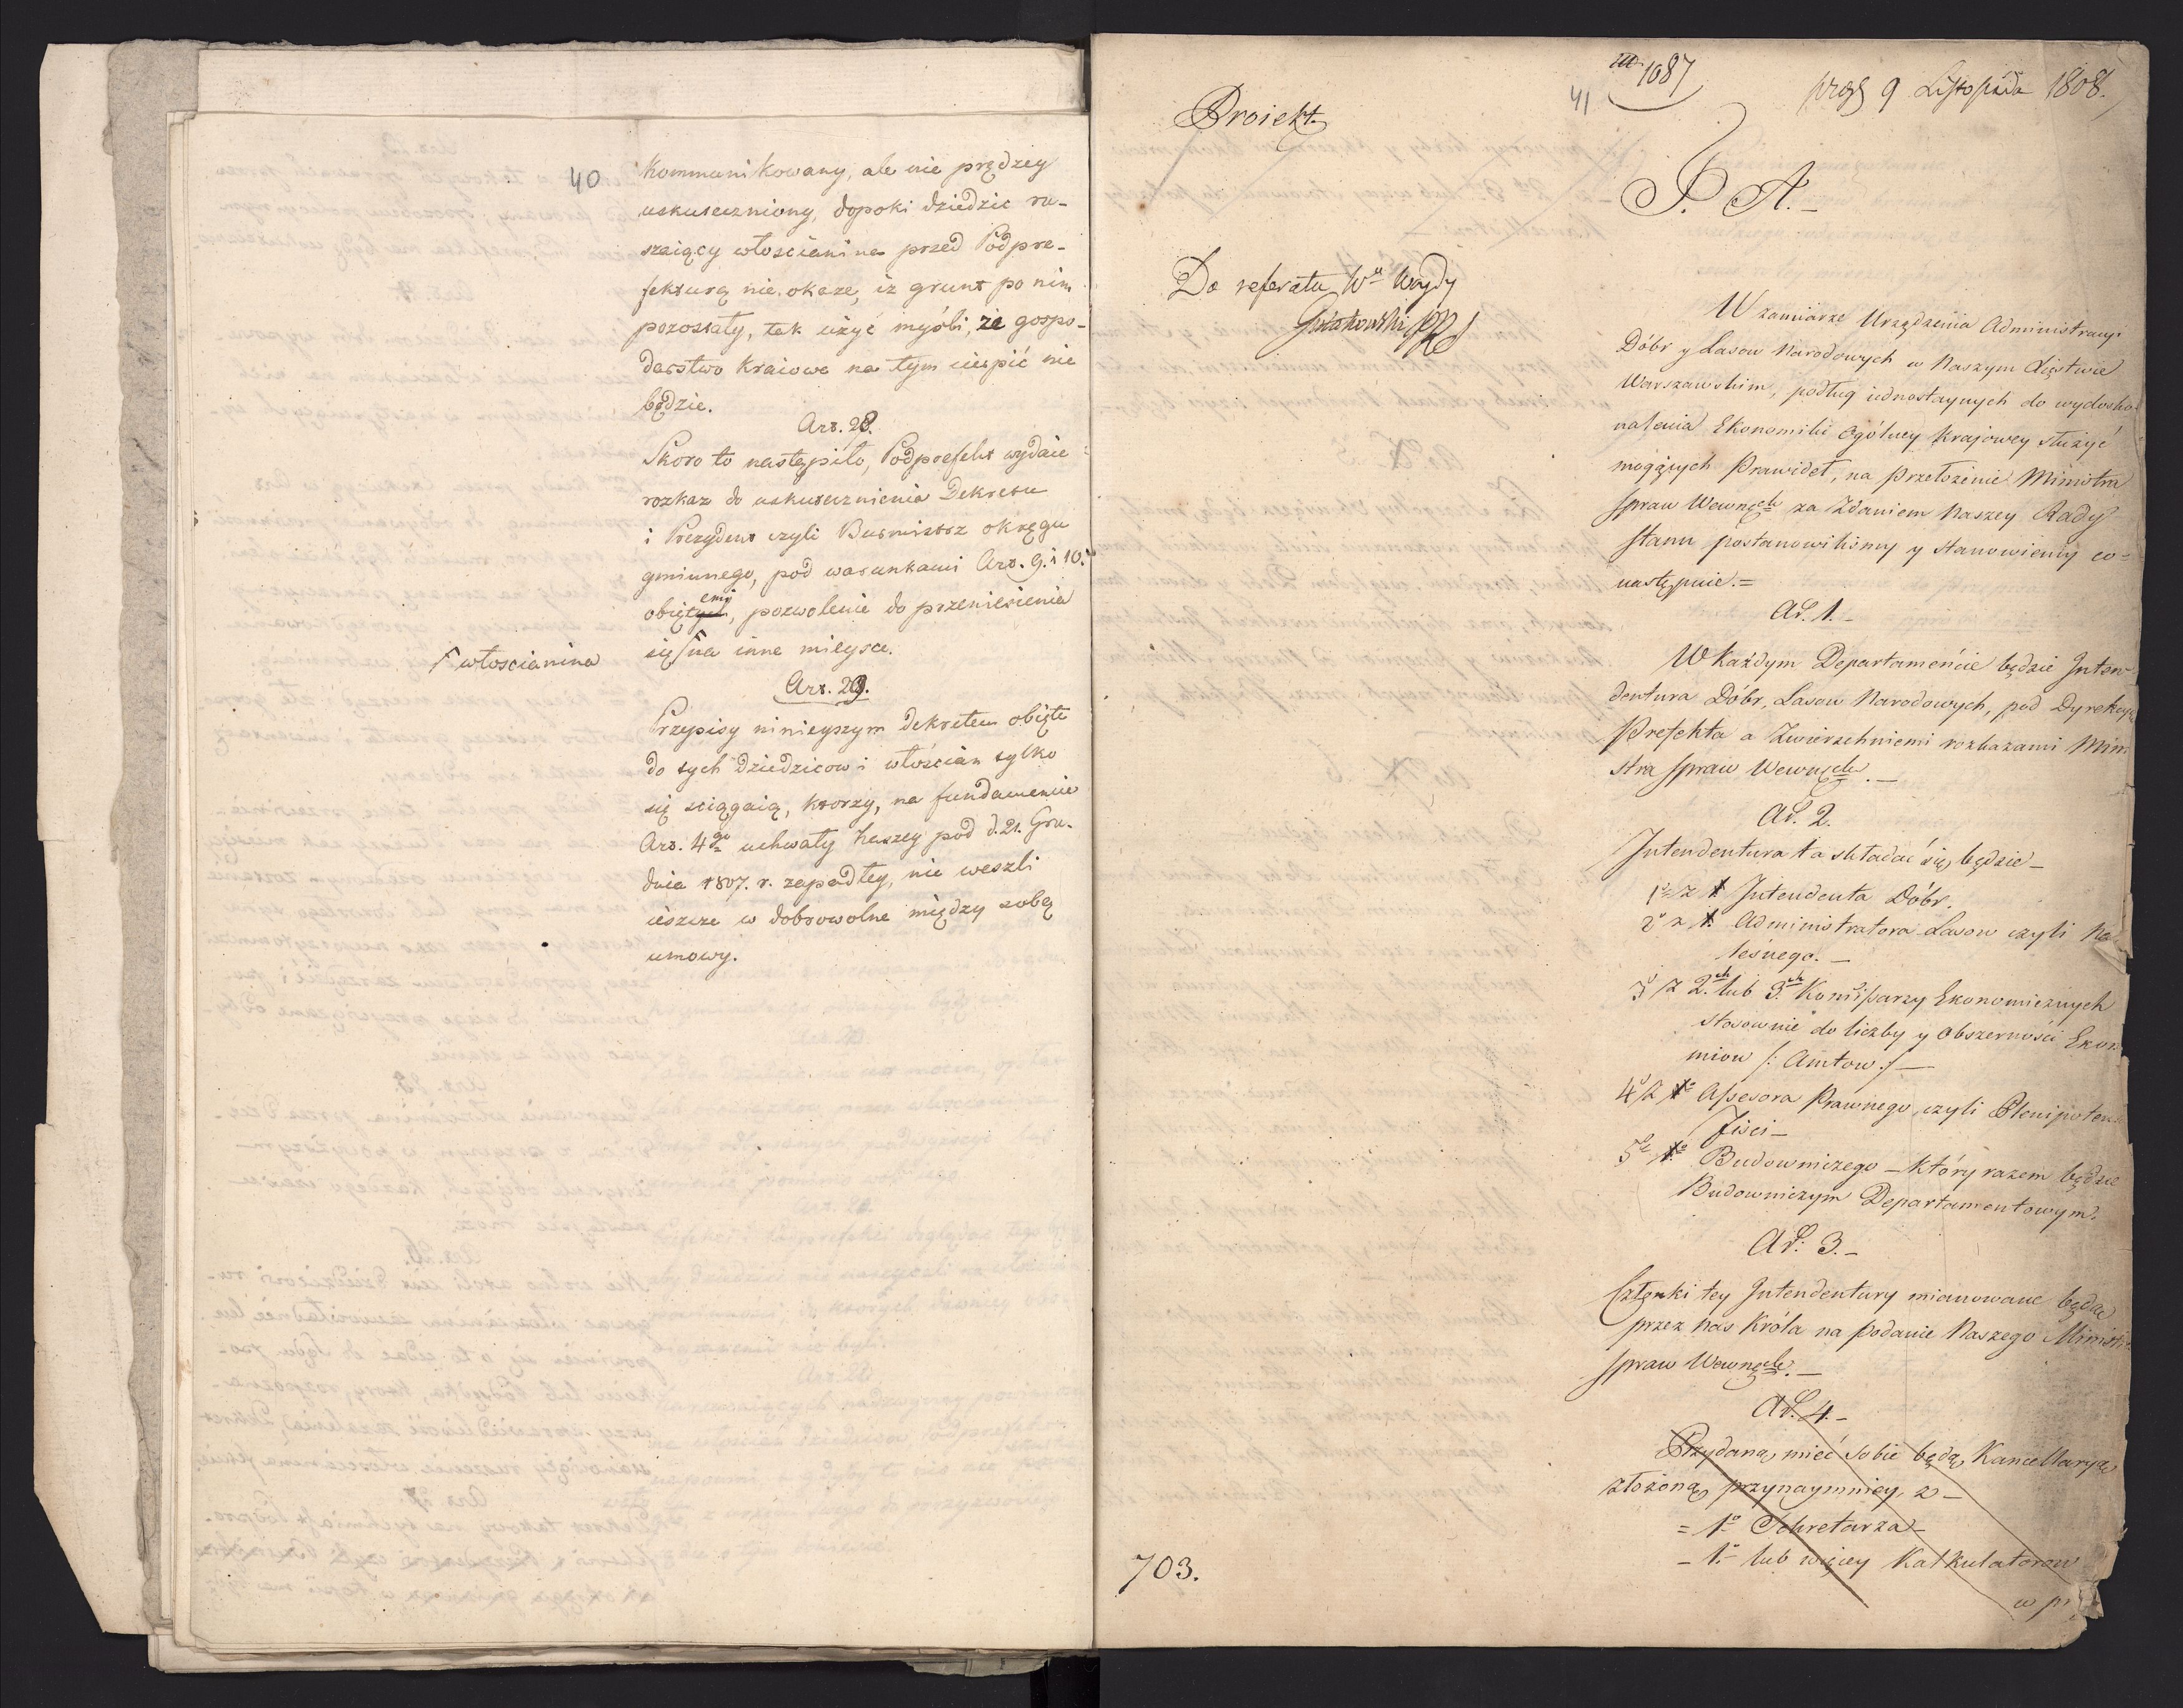 40
kommunikowany, ale nie prędzey
uskuteczniony, dopoki dziedzic ru-
szaiący włoscianina przed Podpre-
fekturą nie okaze, iz grunt po nim
pozostały, tak użyć myśli, że gospo-
darstwo kraiowe na tym cierpić nie
będzie.
Art. 28.
Skoro to nastąpiło, Podprefekt wydaie
rozkaz do uskutecznienia Dekretu
i Prezydent czyli Burmistrz okręgu
gminnego, pod warunkami Art. 9. i 10.
obiętych emi, pozwolenie do przeniesienia
się na inne mieysce.
włoscianina
Art. 29.
Przepisy ninieyszym dekretem obięte
do tych dziedzicow i włościan tylko
się sciągaią, ktorzy, na fundamencie
Art. 4go uchwały naszey pod d. 21. Gru-
dnia 1807. r. zapadłey, nie weszli
ieszcze w dobrowolne między sobą
umowy.
41
1087
9 Listopada 1808.
Proiekt.
Do referatu
703.
W zamiarze Urządzenia Administracyi
Dóbr y Lasow Narodowych w Naszym Xięstwie
Warszawskim, podług iednostaynych do wydosko-
nalenia Ekonomiki Ogólney Krajowey służyć
mogących Prawideł, na Przełożenie Ministra
Spraw Wewnęch za Zdaniem Naszey Rady
Stanu postanowilismy y Stanowiemy co-
następuie.=
Art. 1.-
W Każdym Departamencie będzie Inten-
dentura Dóbr, Lasow Narodowych, pod Dyrekcyą
Prefekta a Zwierzchniemi rozkazami Mini-
stra Spraw Wewnęch.-
Art. 2.
Intendentura ta składać się będzie-
1o z 1 Intendenta Dóbr.
2o z 1. Administratora Lasow czyli Na-
leśnego.-
3o z 2ch lub 3ch Komissarzy Ekonomicznych
stosownie do liczby y Obszerności Ekono-
miow /: Amtow :/-
4o z 1o Assesora Prawnego, czyli Plenipoten-
5o z 1o Budowniczego - który razem będzie
Budowniczym Departamentowym.
Art. 3.-
Członki tey Intendentury mianowane będą
przez nas Króla na podanie Naszego Ministra
Spraw Wewnęch.-
Art. 4.-
Przydaną mieć sobie będą Kancellaryą
złożoną przynaymniey, z-
= 1o Sekretarza-
- 1.- lub więcey Kalkulatorow